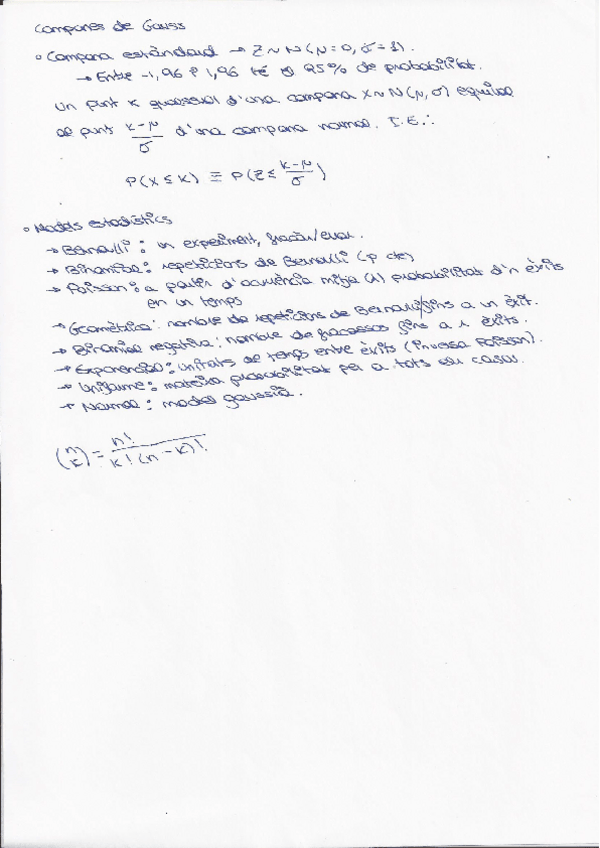 Campanes de Gauss
◦ Campana estàndard → Z ~ N(μ=0, σ=1).
→ Entre -1,96 i 1,96 té el 95% de probabilitat.
Un punt k qualsevol d'una campana X~N(μ,σ) equival
al punt (k-μ)/σ d'una campana normal. I.E.:
P(X ≤ k) ≡ P(Z ≤ (k-μ)/σ)
◦ Models estadístics
→ Bernoulli: un experiment, fracàs/èxit.
→ Binomial: repeticions de Bernoulli (p cte)
→ Poisson: a partir d'ocurrència mitja (λ) probabilitat d'n èxits
en un temps
→ Geomètrica: nombre de repeticions de Bernoulli fins a un èxit.
→ Binomial negativa: nombre de fracassos fins a r èxits.
→ Exponencial: unitats de temps entre èxits (inversa Poisson).
→ Uniforme: mateixa probabilitat per a tots els casos.
→ Normal: model gaussià.
(n k) = n! / k!(n-k)!